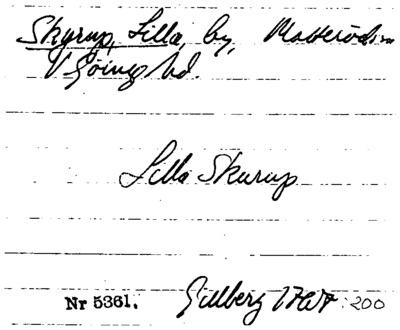 Skyrup, Lilla, by, Matteröds sn
V Göinge hd.
Lilla Skurup
Nr 5361. Gillberg 1767: 200